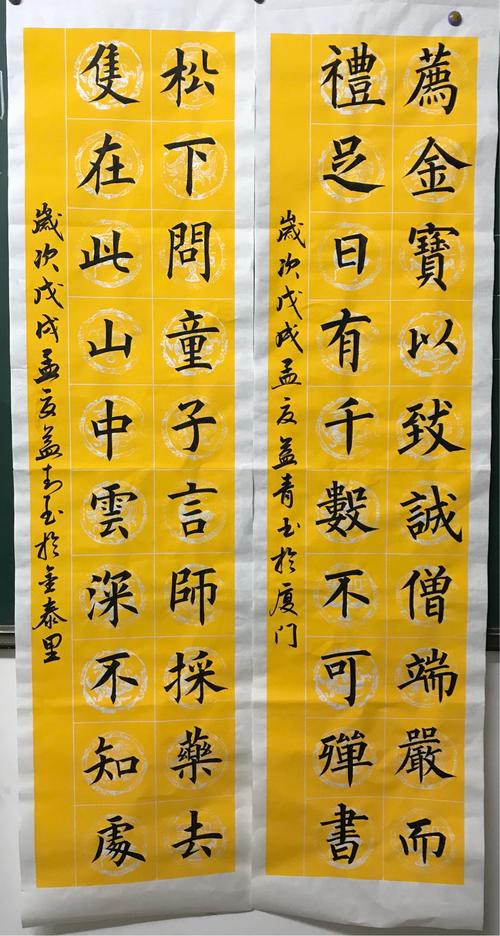 薦金寶以致誠僧端嚴而
禮足日有千數不可殫書
歲次戊戌孟夏益青书於厦门
松下問童子言師採藥去
隻在此山中雲深不知處
歲次戊戌孟夏益青书於金泰里